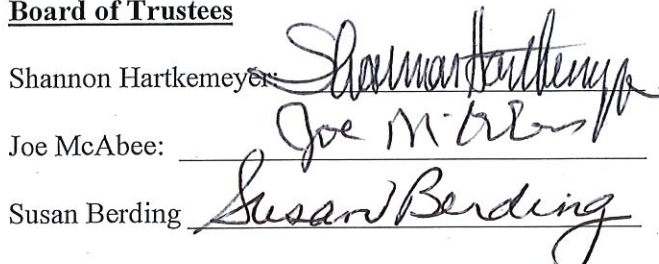 Board of Trustees
Shannon Hartkemeyer: Shannon Hartkemeyer
Joe McAbee: Joe McAbee
Susan Berding Susan Berding